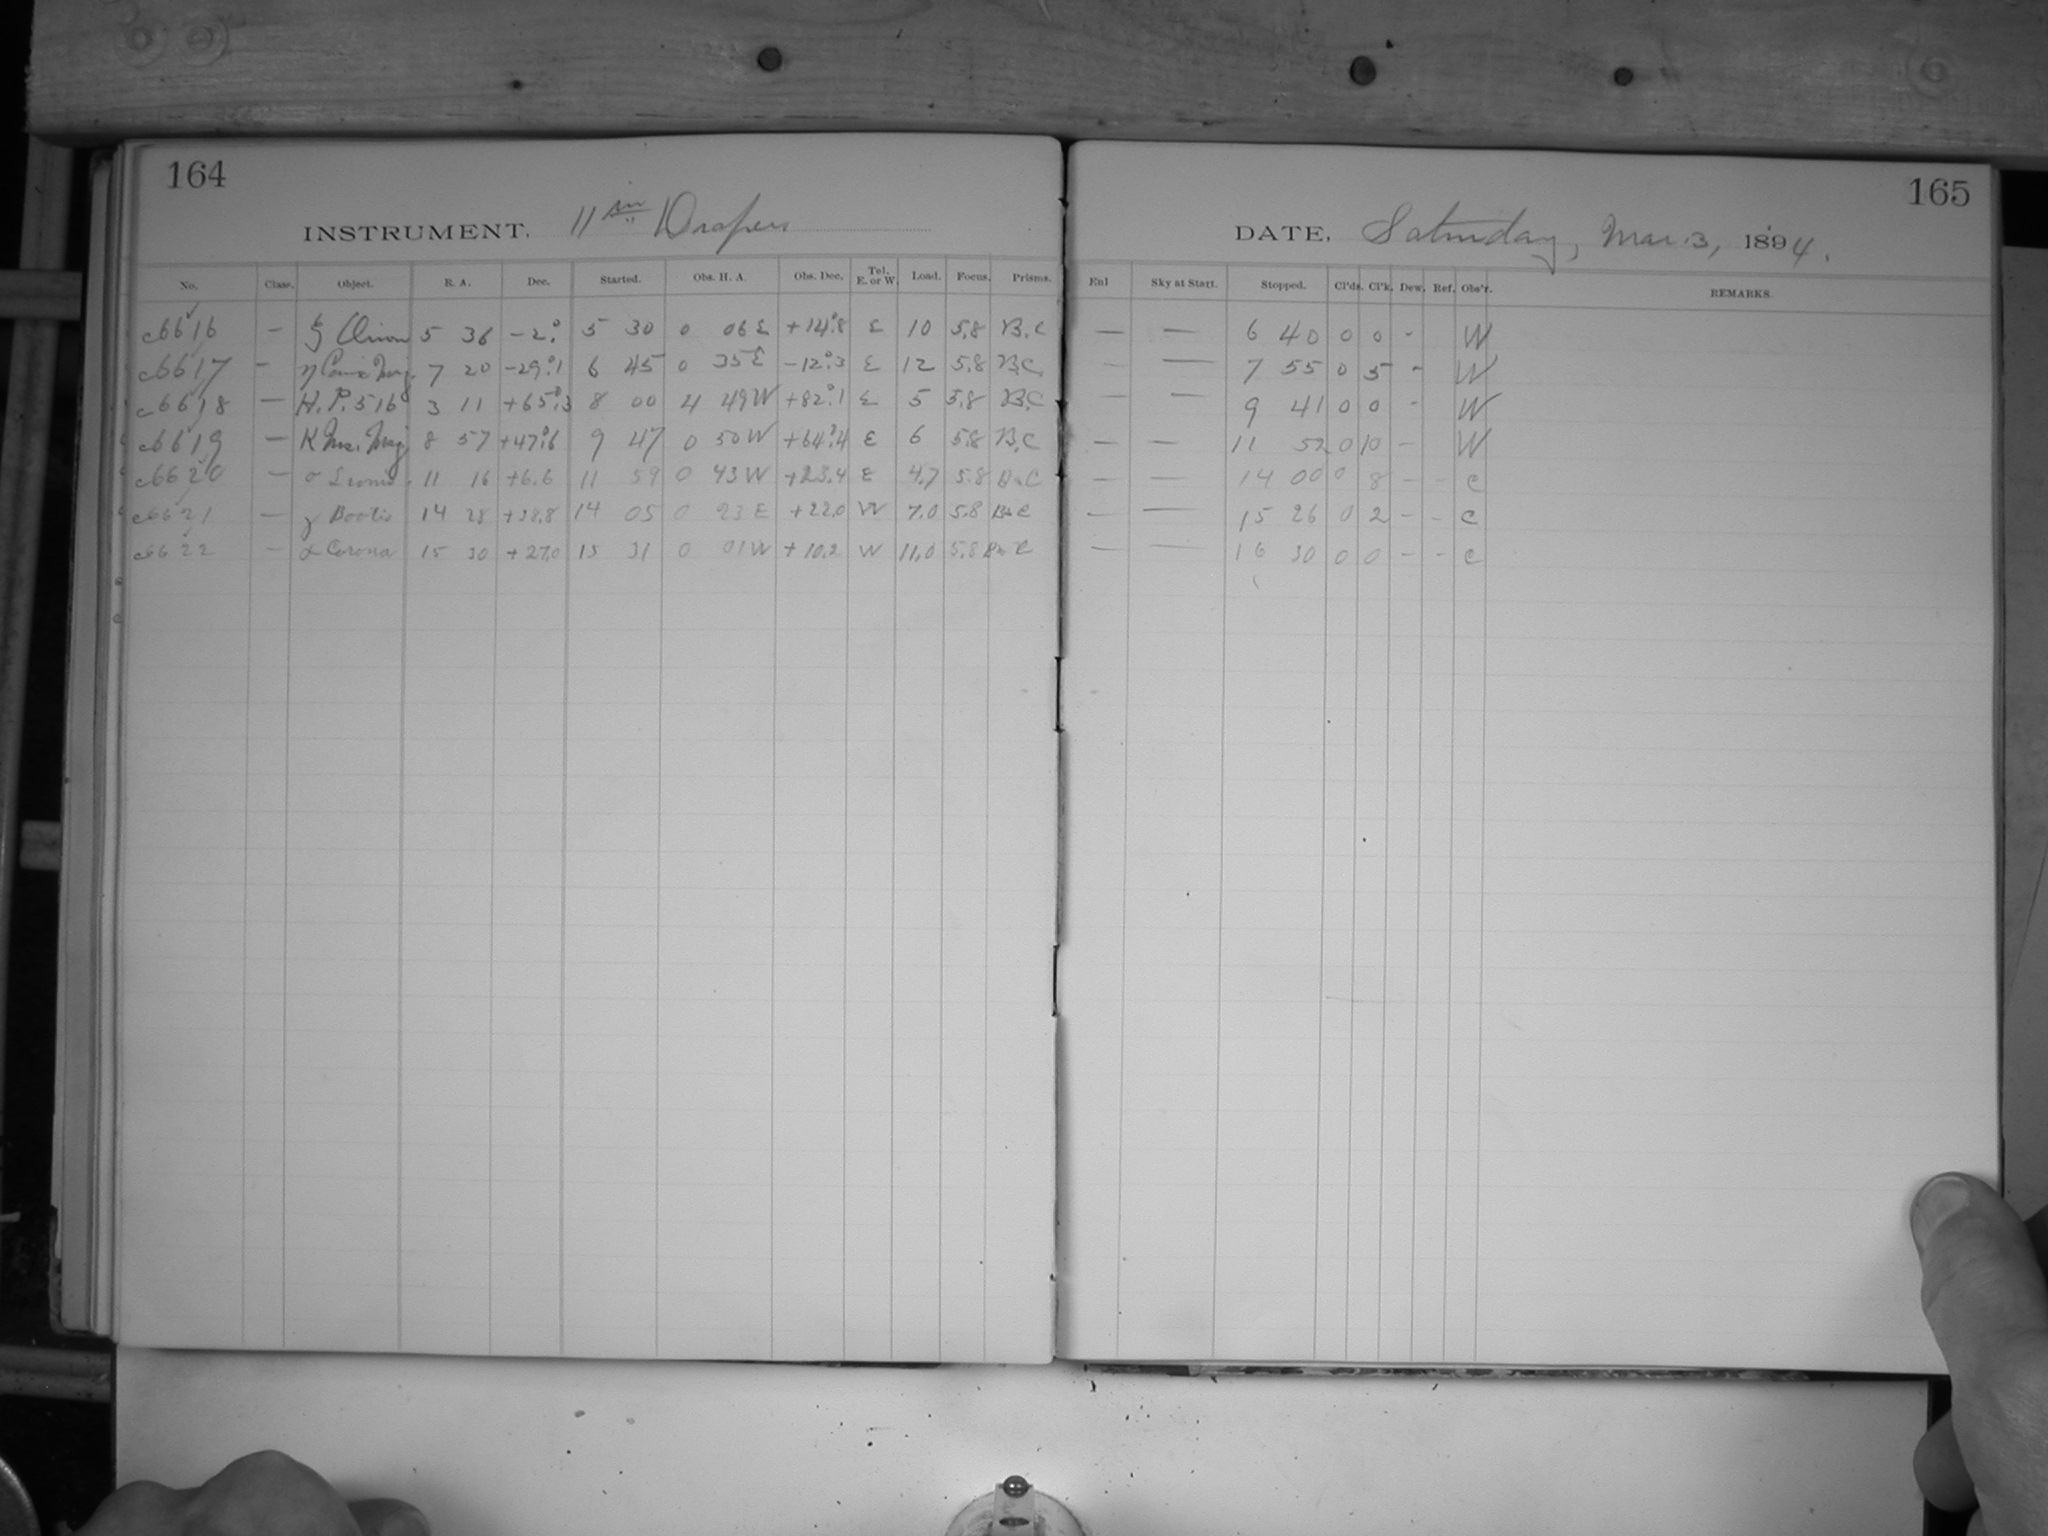 164
INSTRUMENT. 11 in Draper
No. Class. Object. R. A. Dec. Started. Obs. H. A. Obs. Dec. Tel. E. or W. Load. Focus. Prisms.
c6616 — ζ Orion 5 36 -2.° 5 30 0 06 E +14°.8 E 10 5.8 B.C
c6617 — η Canis Maj. 7 20 -29°.1 6 45 0 35 E -12°.3 E 12 5.8 B.C.
c6618 — H.P. 516 3 11 +65°.3 8 00 4 49 W +82°.1 E 5 5.8 B.C
c6619 — K Urs. Maj 8 57 +47°.6 9 47 0 50 W +64°.4 E 6 5.8 B.C
c6620 — σ Leonis 11 16 +6.6 11 59 0 43 W +23.4 E 4.7 5.8 B.C
c6621 — γ Bootis 14 28 +38.8 14 05 0 23 E +22.0 W 7.0 5.8 B.C
c6622 — α Corona 15 30 +27.0 15 31 0 01 W +10.2 W 11.0 5.8 B.C
165
DATE. Saturday, Mar. 3, 1894.
Enl Sky at Start. Stopped. Cl'ds. Cl'k. Dew. Ref. Obs'r. REMARKS.
— — 6 40 0 0 - W
— — 7 55 0 5 - W
— — 9 41 0 0 - W
— — 11 52 0 10 - W
— — 14 00 0 8 - - C
— — 15 26 0 2 - - C
— — 16 30 0 0 - - C